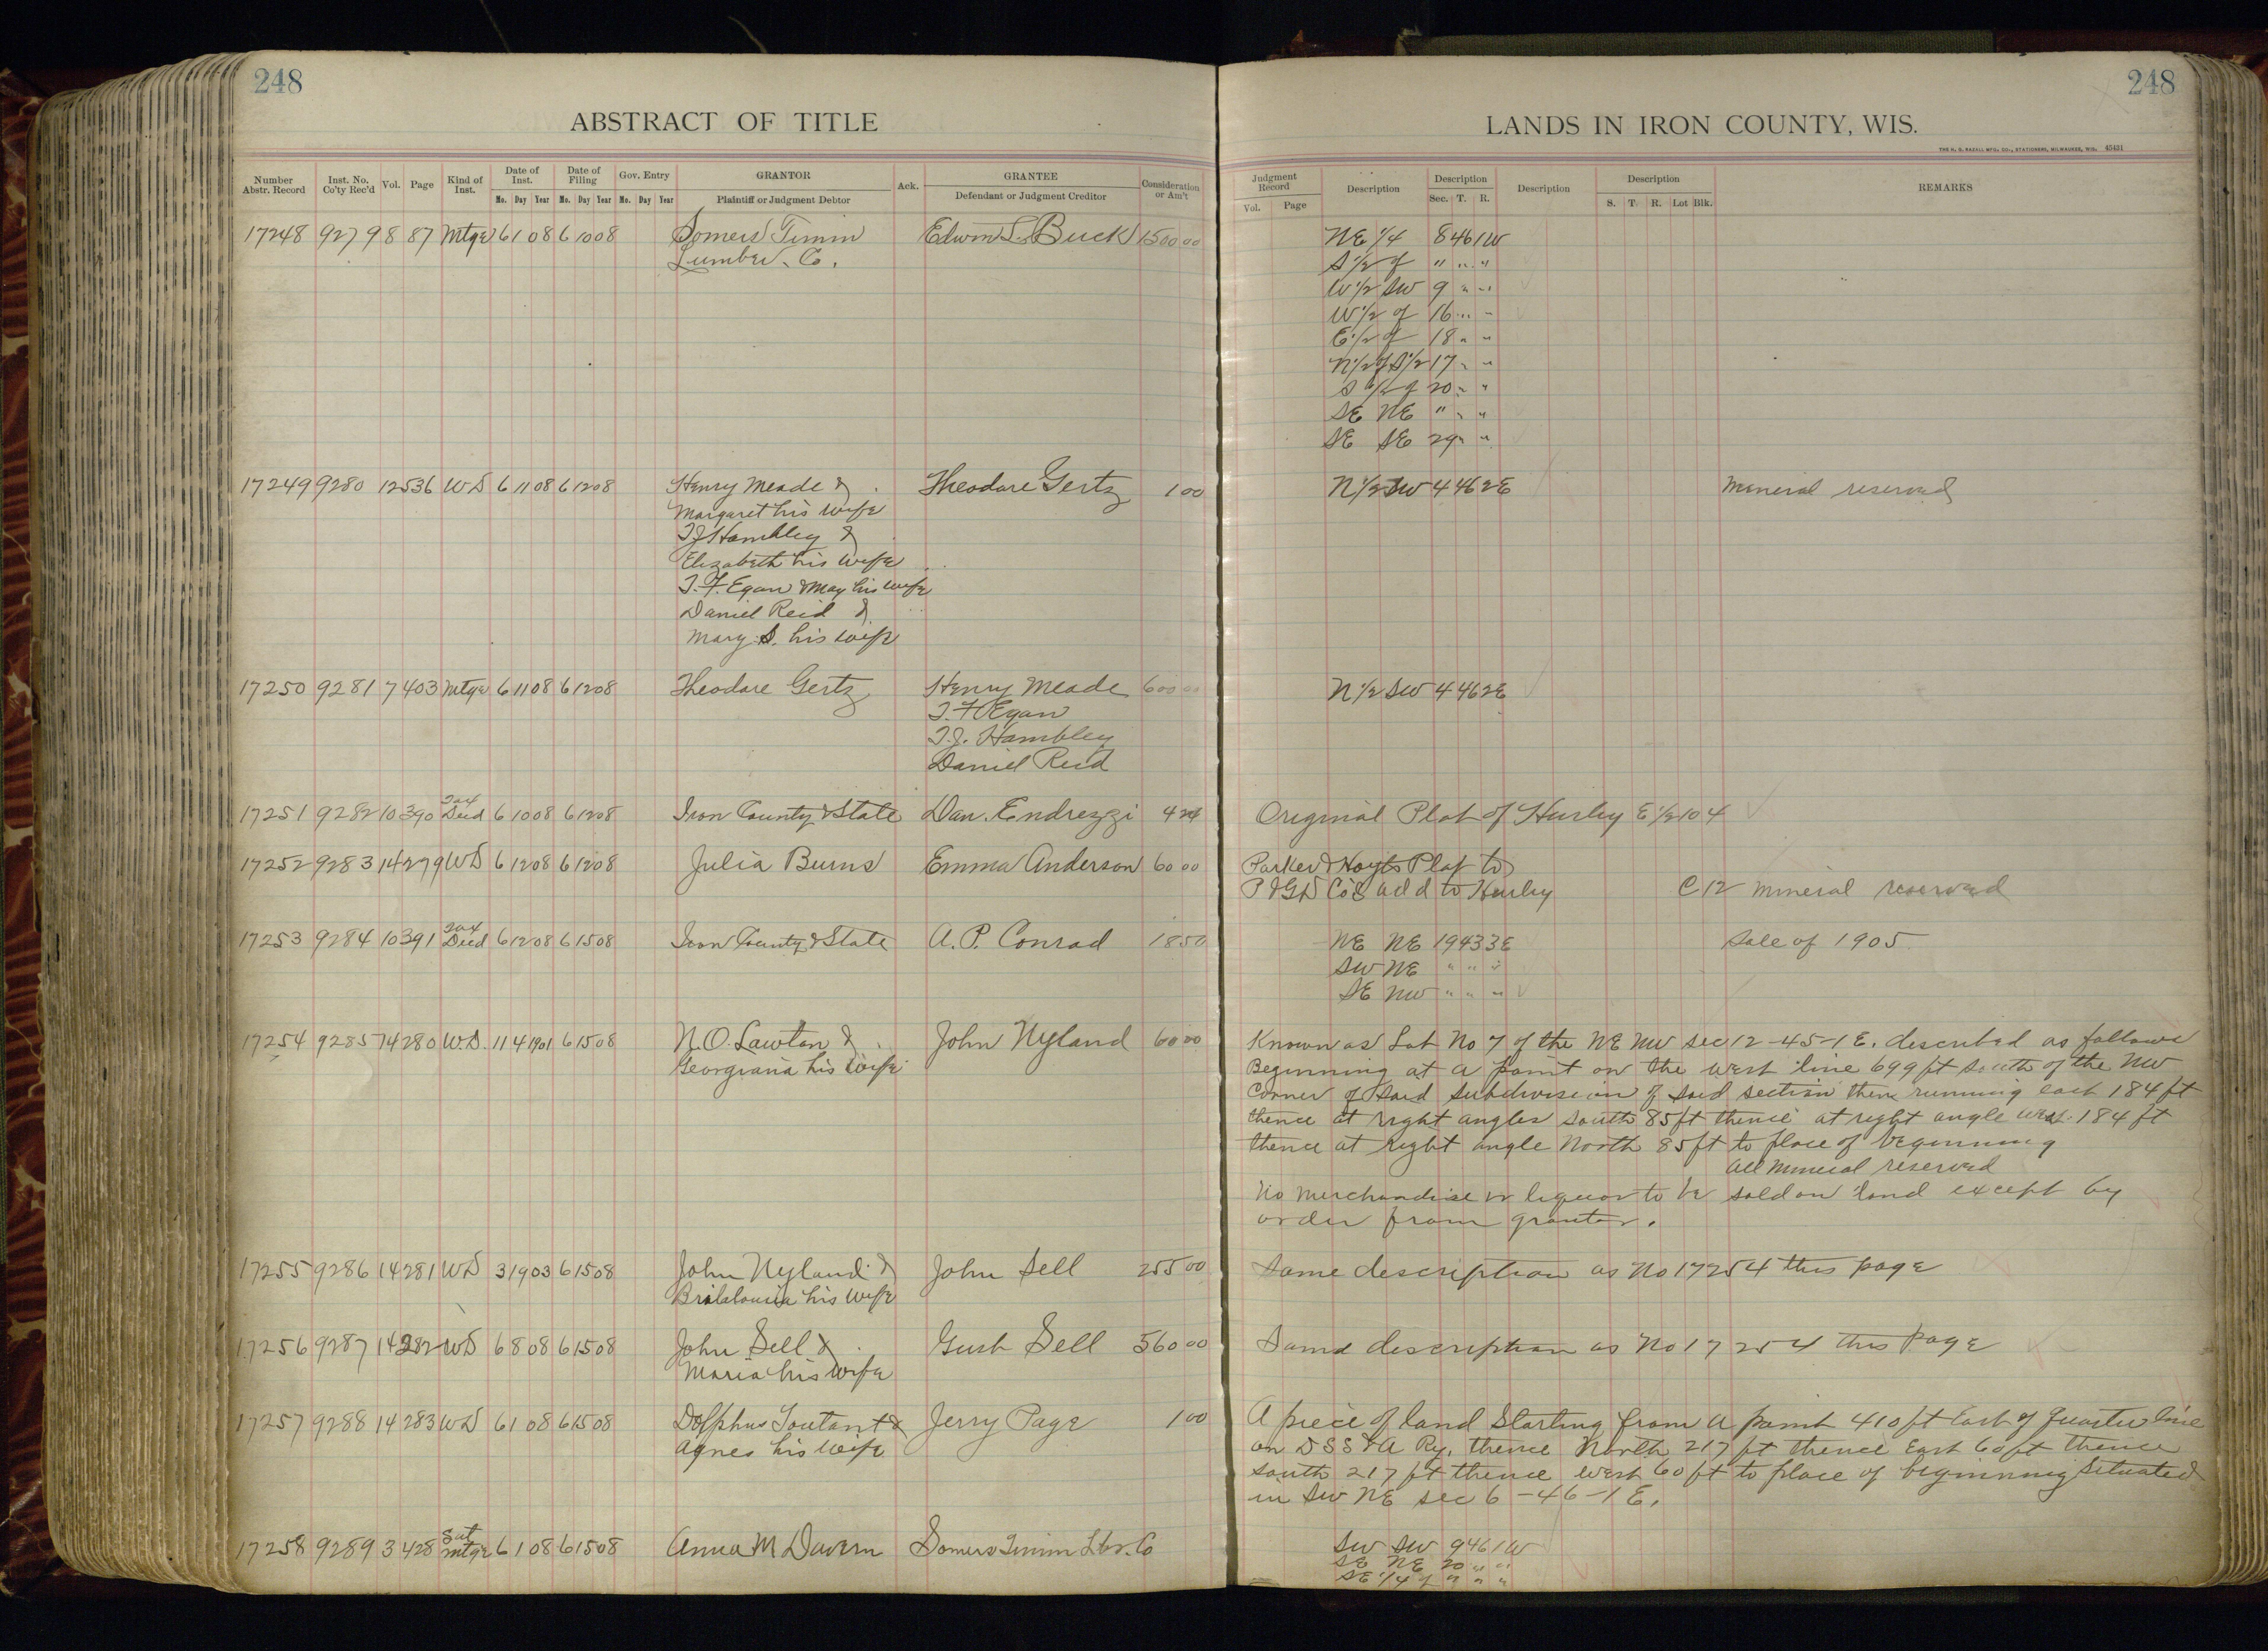 248
ABSTRACT OF TITLE
Number Abstr. Record Inst. No. Co'ty Rec'd Vol. Page Kind of Inst. Date of Inst. Date of Filing Gov. Entry GRANTOR Ack. GRANTEE Consideration or Am't
Mo. Day Year Mo. Day Year Mo. Day Year Plaintiff or Judgment Debtor Defendant or Judgment Creditor
17248 9279 8 87 Mtge 6 1 08 6 10 08 Somers Timm Edwin S. Buck 1500 00
Lumber Co.
17249 9280 12 536 WD 6 11 08 6 12 08 Henry Meade & Theodore Gertz 1 00
Margaret his wife
T J Hambley &
Elizabeth his wife
T. F. Egan & May his wife
Daniel Reid &
Mary S. his wife
17250 9281 7 403 Mtge 6 11 08 6 12 08 Theodore Gertz Henry Meade 600 00
T. F. Egan
T. J. Hambley
Daniel Reid
17251 9282 10 390 Tax Deed 6 10 08 6 12 08 Iron County & State Dan. Endrezzi 4 24
17252 9283 14 279 WD 6 12 08 6 12 08 Julia Burns Emma Anderson 60 00
17253 9284 10 391 Tax Deed 6 12 08 6 15 08 Iron County & State A. P. Conrad 18 50
17254 9285 14 280 W.D. 11 4 1901 6 15 08 N. O. Lawton & John Nyland 60 00
Georgiana his wife
17255 9286 14 281 WD 3 19 03 6 15 08 John Nyland & John Sell 255 00
his wife
17256 9287 14 282 WD 6 8 08 6 15 08 John Sell & Gust Sell 560 00
Maria his wife
17257 9288 14 283 WD 6 1 08 6 15 08 Dolphus Toutant & Jerry Page 1 00
Agnes his wife
17258 9289 3 428 Sat Mtge 6 1 08 6 15 08 Anna M Davern Somers Timm Lbr. Co
248
LANDS IN IRON COUNTY, WIS.
THE H. G. RAZALL MFG. CO., STATIONERS, MILWAUKEE, WIS. 45431
Judgment Record Description Description Description Description REMARKS
Vol. Page Sec. T. R. S. T. R. Lot Blk.
NE 1/4 8 46 1W
S 1/2 of " " "
W 1/2 SW 9 " "
W 1/2 of 16 " "
E 1/2 of 18 " "
N 1/2 of S 1/2 17 " "
S 1/2 of 20 " "
SE NE " " "
SE SE 29 " "
N 1/2 SW 4 46 2E Mineral reserved
N 1/2 SW 4 46 2E
Original Plat of Hurley E 1/2 10 4
Parker & Hoyts Plat to
P & GD Co's add to Hurley C 12 mineral reserved
NE NE 19 43 3E Sale of 1905
SW NE " " "
SE NW " " "
Known as Lot No 7 of the NE NW sec 12-45-1 E. described as follows
Beginning at a point on the west line 699 ft south of the NW
Corner of said subdivision of said section then running east 184 ft
thence at right angles south 85 ft thence at right angle west 184 ft
thence at right angle North 85 ft to place of beginning
All Mineral reserved
No merchandise or liquor to be sold on land except by
order from grantor.
Same description as No 17254 this page
Same description as No 17254 this page
A piece of land starting from a point 410 ft East of quarter line
on D S S & A Ry. thence North 217 ft thence East 60 ft thence
south 217 ft thence west 60 ft to place of beginning situated
in SW NE sec 6-46-1 E.
SW SW 9 46 1W
SE NE 20 " "
SE 1/4 of " " "